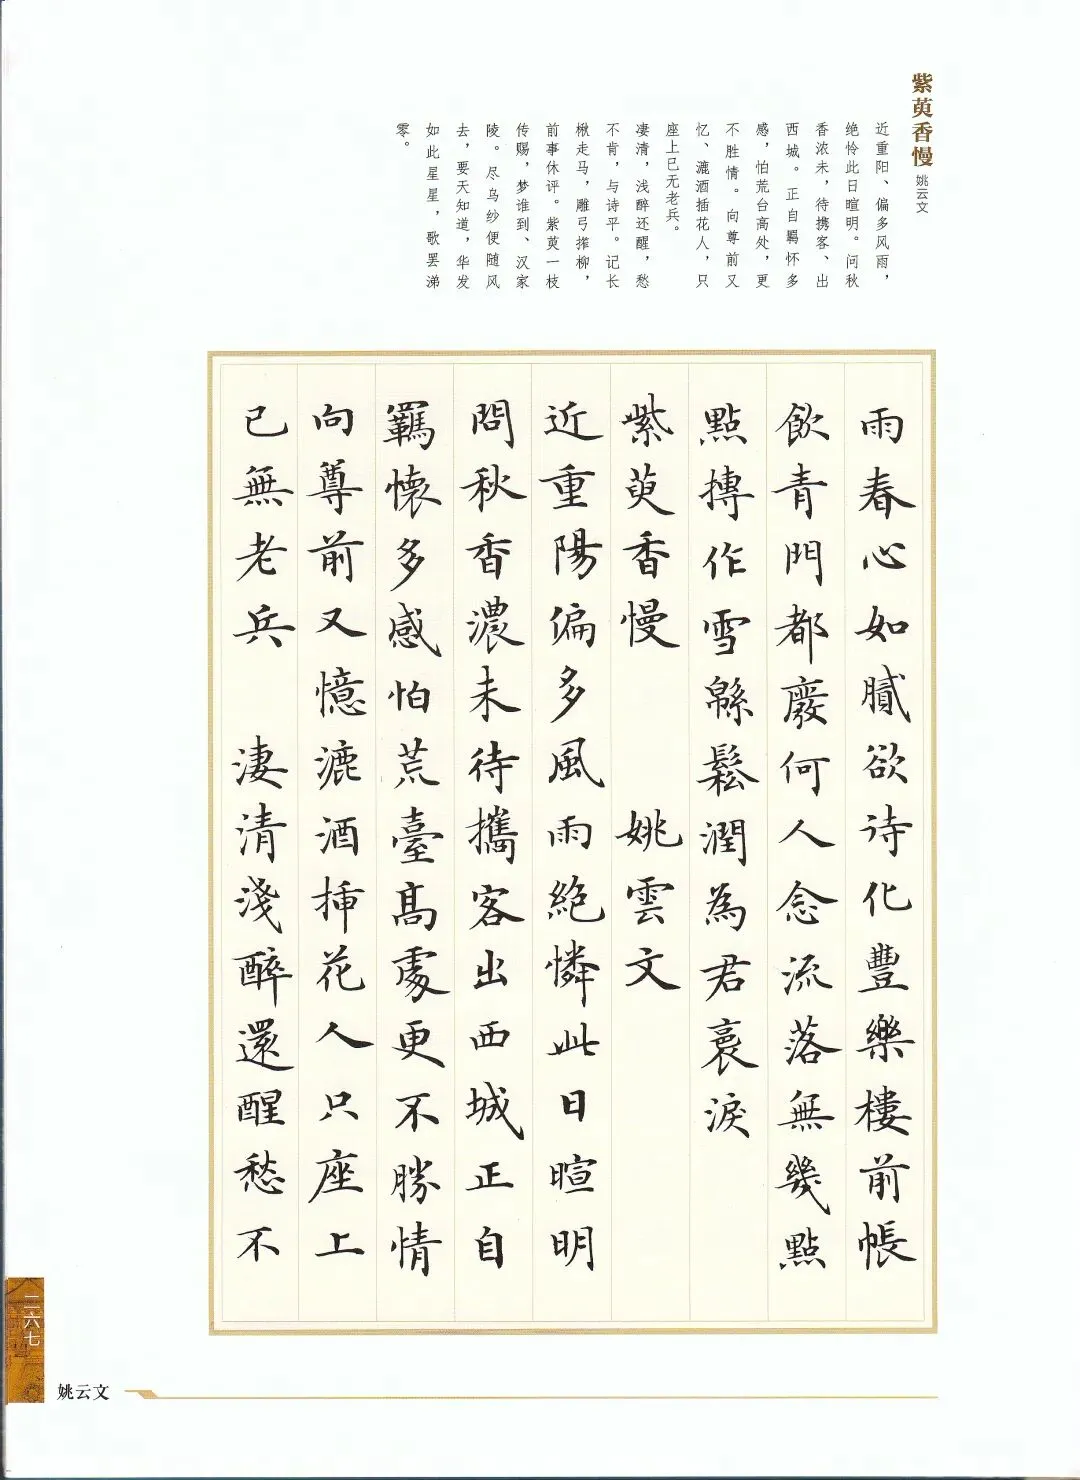 紫萸香慢 姚云文
近重阳、偏多风雨，
绝怜此日暄明。问秋
香浓未，待携客、出
西城。正自羁怀多
感，怕荒台高处，更
不胜情。向尊前又
忆、漉酒插花人，只
座上已无老兵。
凄清，浅醉还醒，愁
不肯，与诗平。记长
楸走马，雕弓搾柳，
前事休评。紫萸一枝
传赐，梦谁到、汉家
陵。尽乌纱便随风
去，要天知道，华发
如此星星，歌罢涕
零。
雨春心如膩欲诗化豐樂樓前帳
飲青門都廢何人念流落無幾點
點摶作雪緜鬆潤為君裛淚
紫萸香慢 姚雲文
近重陽偏多風雨絶憐此日暄明
問秋香濃未待攜客出西城正自
羈懷多感怕荒臺髙處更不勝情
向尊前又憶漉酒挿花人只座上
已無老兵 淒清淺醉還醒愁不
二六七
姚云文